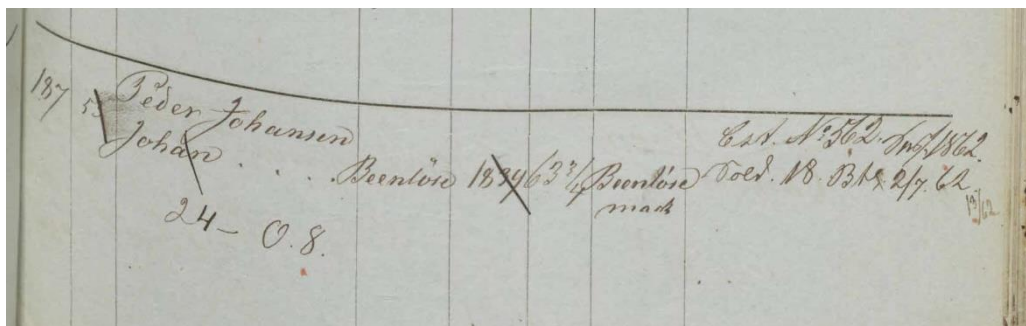 187 Peder Johansen
Johan
Beenløse 1839 63 3/4 Beenløse
mark
Est. No 562. 1862.
Sold. 18. Bt. 2/7. 62
19/62
24 – O. 8.